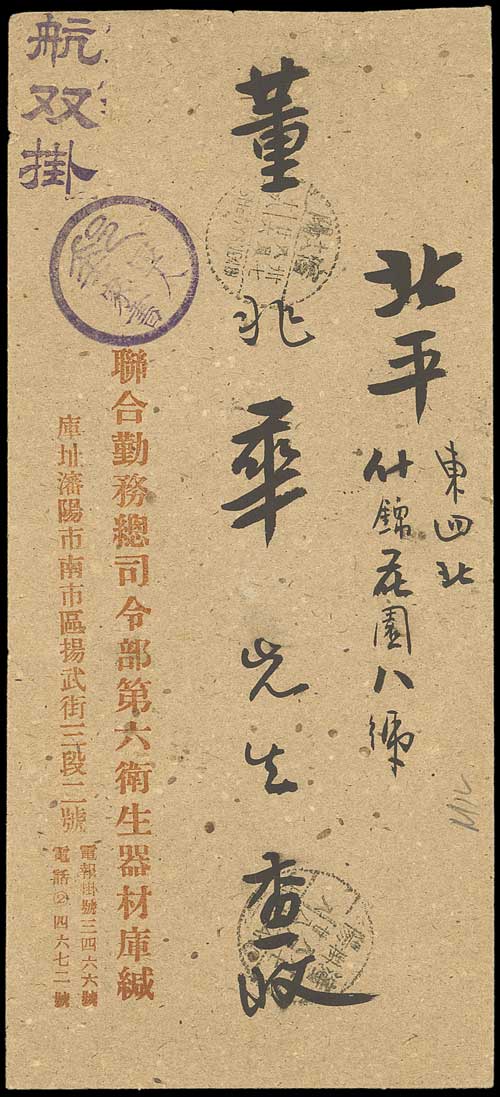 東四北
北平什錦花園八號
董兆華先生查收
航双掛
聯合勤務總司令部第六衛生器材庫緘
庫址瀋陽市南市區揚武街三段二號
電報掛號三四六六號
電話②四六七二號